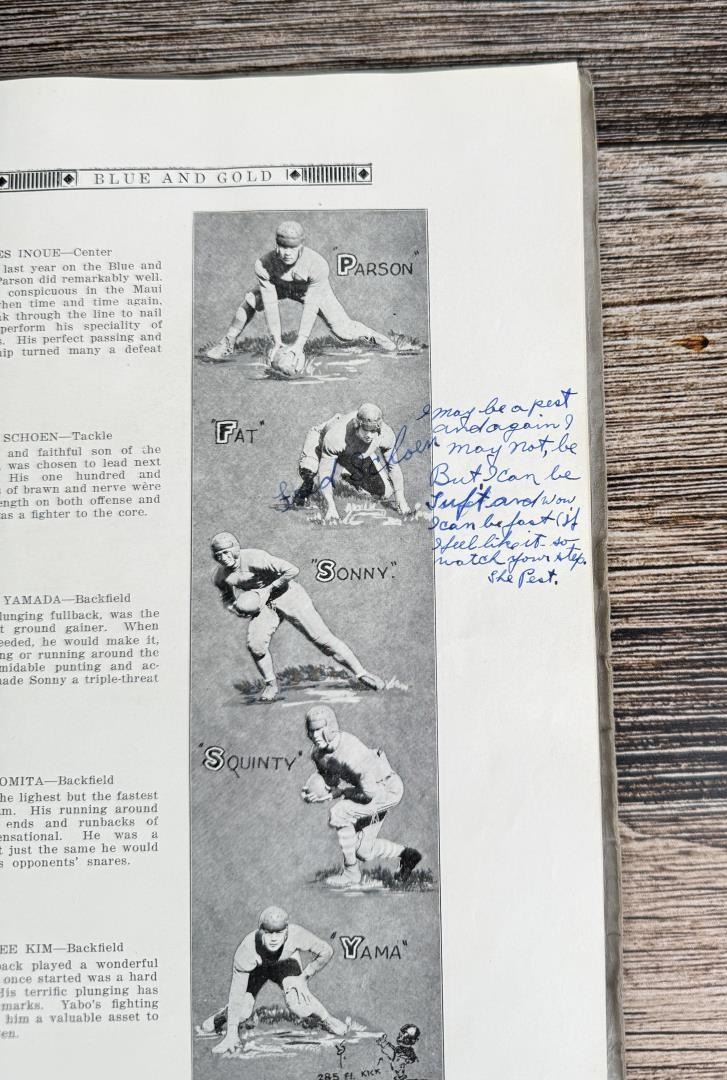 BLUE AND GOLD
ES INOUE—Center
last year on the Blue and
Parson did remarkably well.
conspicuous in the Maui
when time and time again,
k through the line to nail
perform his speciality of
s. His perfect passing and
hip turned many a defeat
"PARSON"
SCHOEN—Tackle
and faithful son of the
was chosen to lead next
His one hundred and
s of brawn and nerve were
ength on both offense and
as a fighter to the core.
"FAT"
Schoen
I may be a pest
and again I
may not be
But I can be
and wow
I can be fast (if
I feel like it so
watch your step.
The Pest.
YAMADA—Backfield
lunging fullback, was the
t ground gainer. When
eeded, he would make it,
ng or running around the
midable punting and ac-
nade Sonny a triple-threat
"SONNY."
OMITA—Backfield
he lighest but the fastest
am. His running around
ends and runbacks of
ensational. He was a
t just the same he would
s opponents' snares.
"SQUINTY"
EE KIM—Backfield
back played a wonderful
once started was a hard
His terrific plunging has
marks. Yabo's fighting
him a valuable asset to
en.
"YAMA"
285 FT. KICK